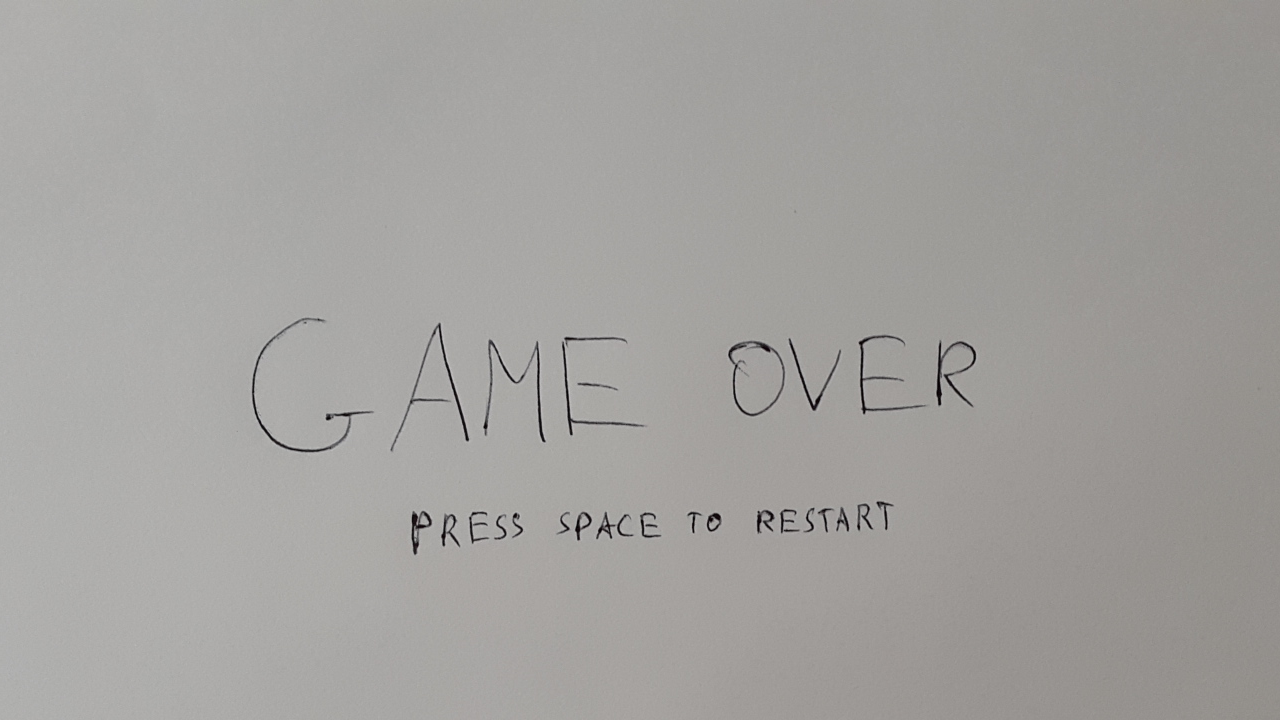 GAME OVER
PRESS SPACE TO RESTART